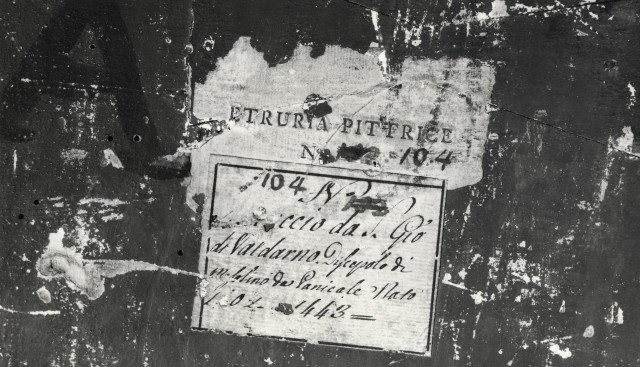 A
ETRURIA PITTRICE
N. 104
104 N
ccio da S. Gio
di Valdarno Discepolo di
solino da Panicale Nato
1443 =